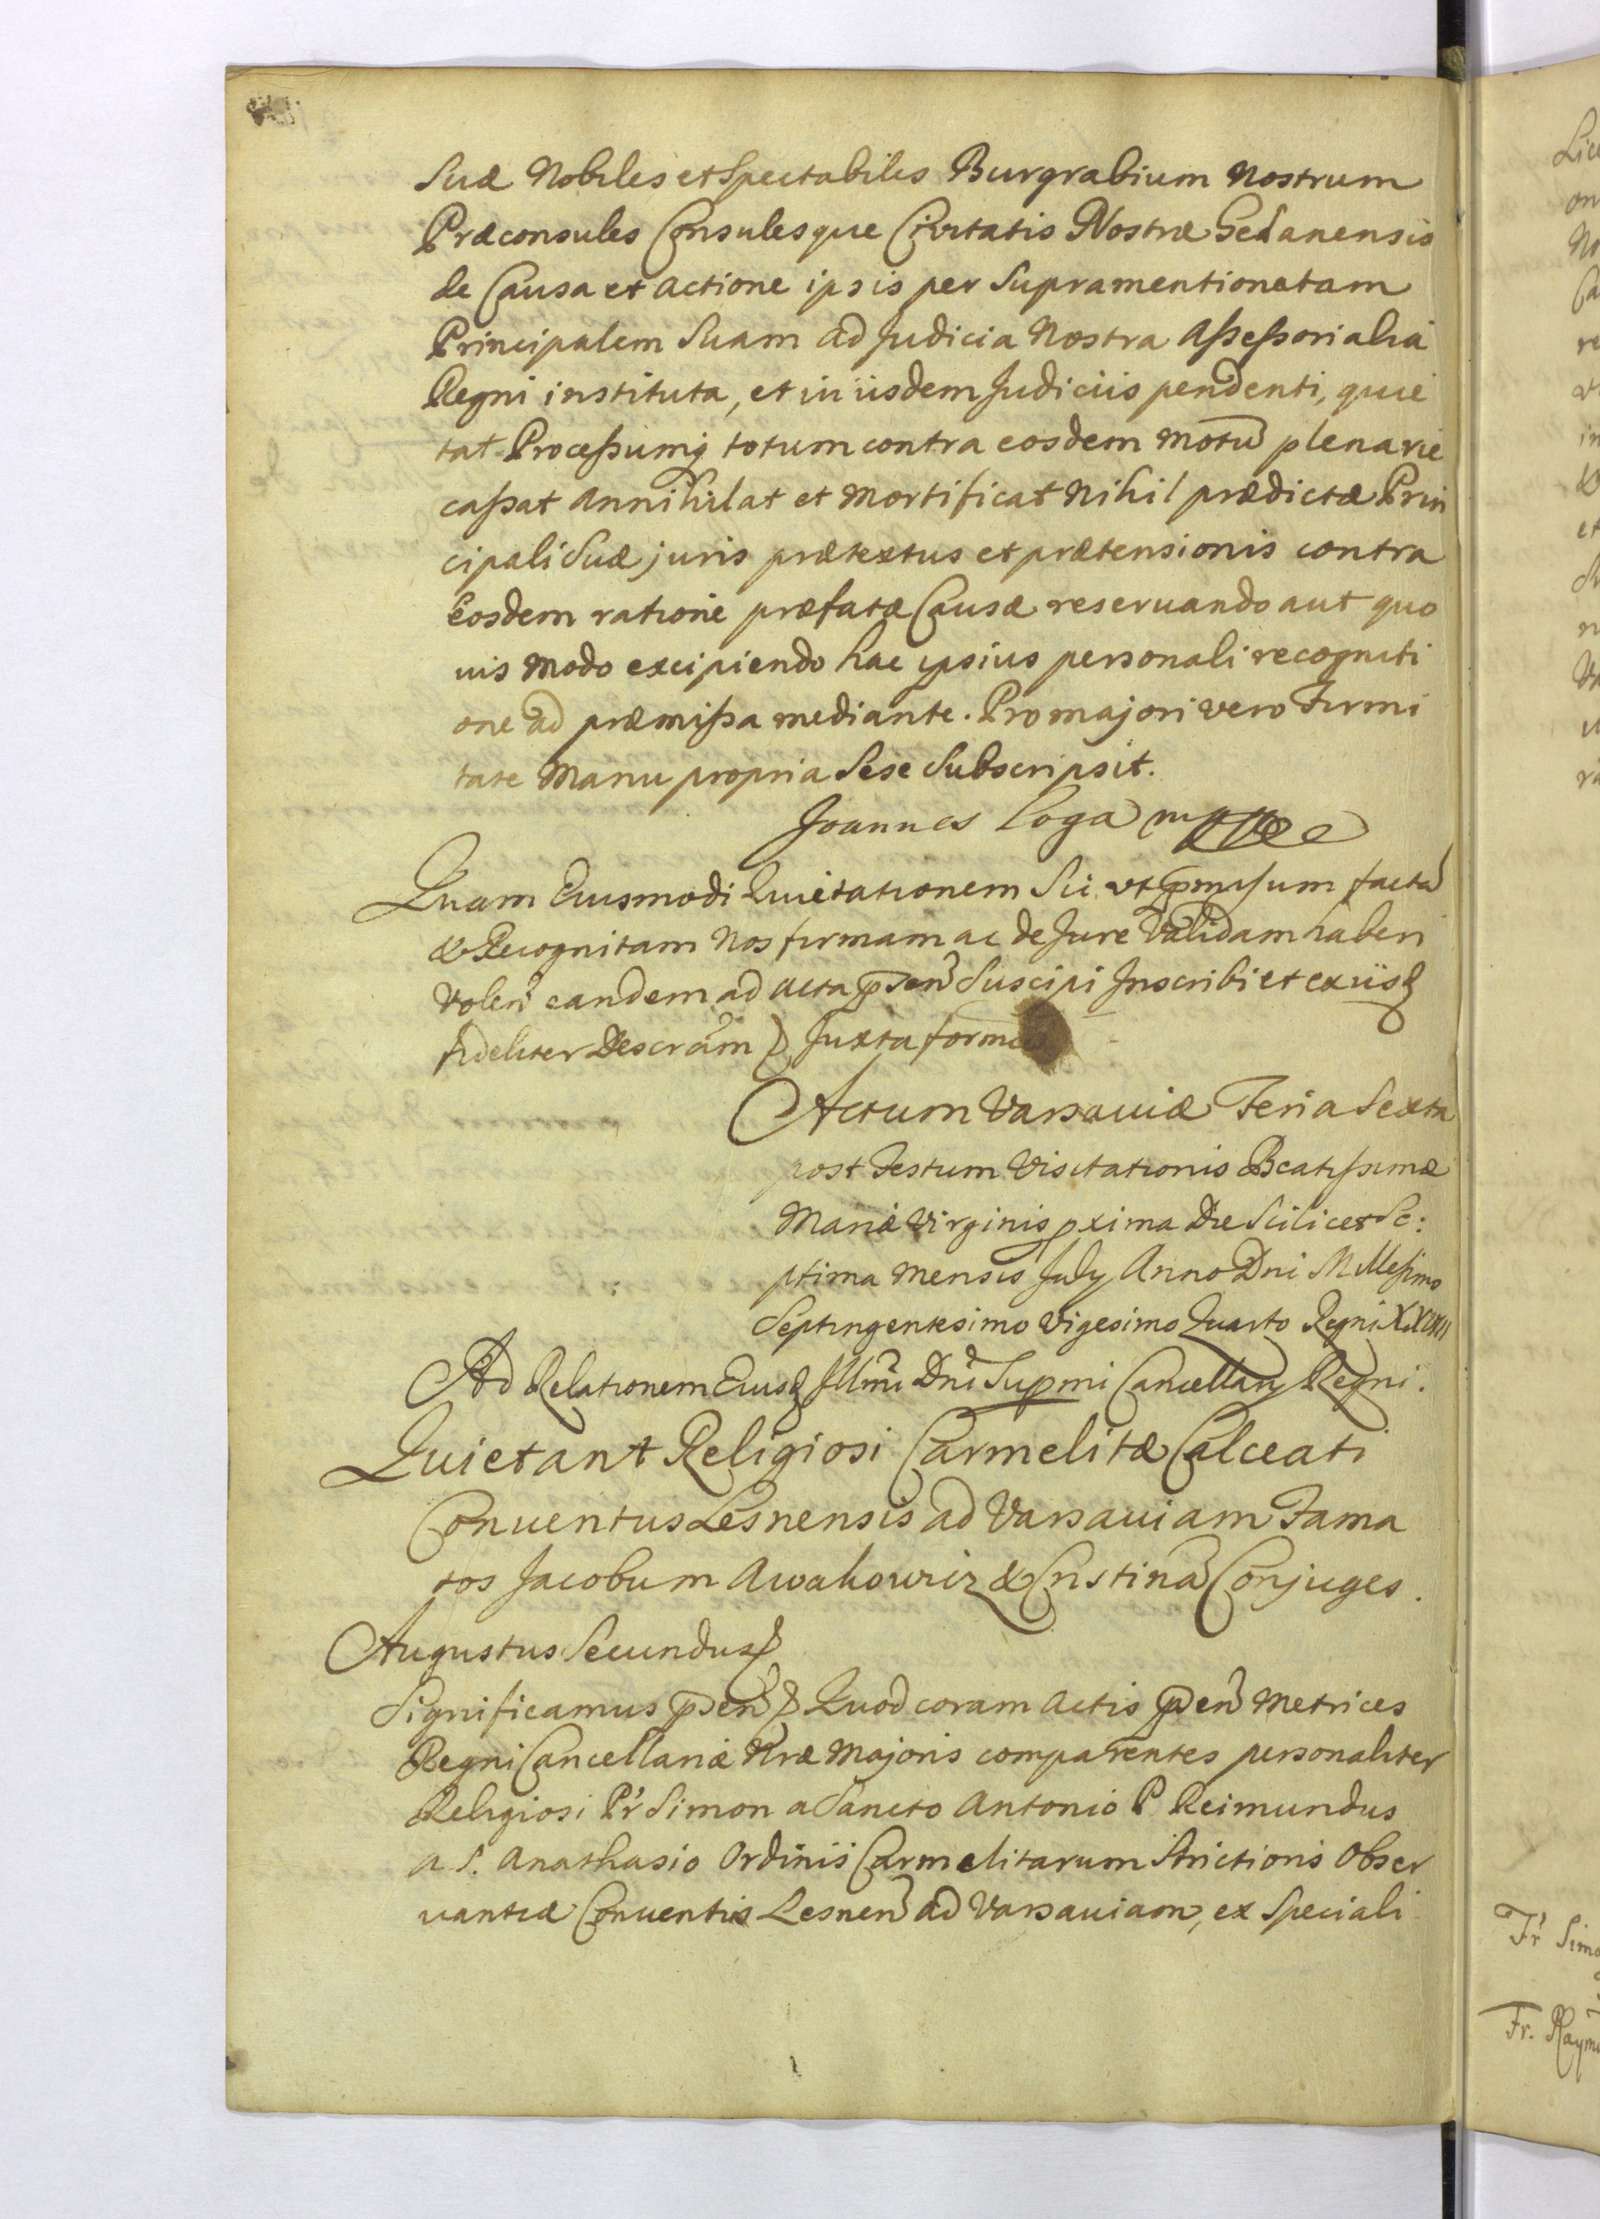 Suæ Nobiles et Spectabiles Burgrabium Nostrum
Præconsules Consulesque Civitatis Nostræ Gedanensis
de Causa et actione ipsis per Supramentionatam
Principalem Suam ad Judicia Nostra Assessorialia
Regni instituta, et in iisdem Judiciis pendenti, quie
tat Processumq totum contra eosdem motu plenarie
cassat Annihilat et Mortificat Nihil prædictæ Prin
cipali Suæ juris prætextus et prætensionis contra
Eosdem ratione præfatæ Causæ reservando aut quo
vis modo excipiendo hac ipsius personali recogniti
one ad præmissa mediante. Pro majori vero Firmi
tate Manu propria Sese Subscripsit.
Joannes Loga mp
Quam Eiusmodi Quietationem Sic ut pmisum facta
& Recognitam Nos firmam ac de Jure Validam haberi
Volen eandem ad acta psen Suscipi Inscribi et ex iisd
fideliter Descrām Juxta form
Actum Varsaviæ Feria Sexta
post Festum Visitationis Beatissimæ
Mariæ Virginis pxima Die Scilicet Se:
ptima mensis July Anno Dni Millesimo
Septingentesimo Vigesimo Quarto Regni XXVIII
Ad Relationem Eiusd Illmi Dni Supmi Cancellary Regni.
Quietant Religiosi Carmelitæ Calceati
Conventus Lesnensis ad Varsaviam Fama
tos Jacobum Awakowicz & Cristina Conjuges.
Augustus Secundus
Significamus psen Quod coram Actis psen Metrices
Regni Cancellariæ Nræ Majoris comparentes personaliter
Religiosi Pr Simon a Sancto Antonio P Reimundus
a S. Anathasio Ordinis Carmelitarum Strictioris Obser
vantiæ Conventus Lesnen ad Varsaviam, ex Speciali
Fr Simo
Fr. Raym